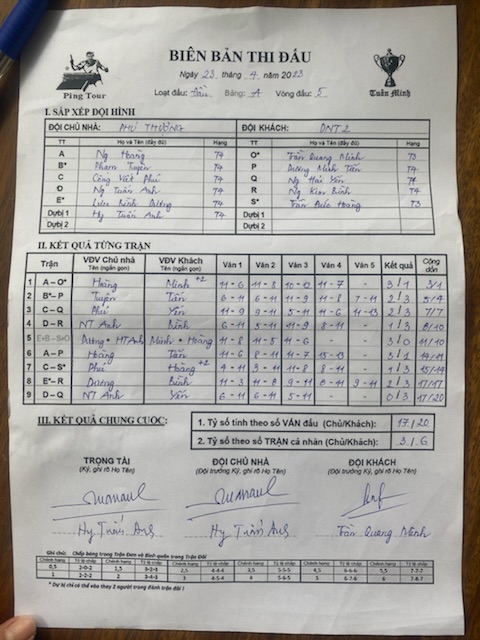 Ping Tour
BIÊN BẢN THI ĐẤU
Ngày 23 tháng 4 năm 2023
Loạt đấu: Bảng: A Vòng đấu: 5
Tuấn Minh
I. SẮP XẾP ĐỘI HÌNH
ĐỘI CHỦ NHÀ: PHÚ THƯỢNG ĐỘI KHÁCH: DNT2
TT Họ và Tên (đầy đủ) Hạng TT Họ và Tên (đầy đủ) Hạng
A Ng Hoàng T4 O* Trần Quang Minh T3
B* Phạm Tuyên T4 P Dương Minh Tân T4
C Công Việt Phú T4 Q Ng Hải Yến T4
D Ng Tuấn Anh T4 R Ng Kiên Bình T4
E* Lưu Bình Dương T4 S* Trần Đức Hoàng T3
Dự bị 1 Hy Tuấn Anh T4 Dự bị 1
Dự bị 2 Dự bị 2
II. KẾT QUẢ TỪNG TRẬN
Trận VĐV Chủ nhà Tên (ngắn gọn) VĐV Khách Tên (ngắn gọn) Ván 1 Ván 2 Ván 3 Ván 4 Ván 5 Kết quả Cộng dồn
1 A – O* Hoàng Minh +2 11 - 6 11 - 8 10 - 12 11 - 7 - 3 / 1 3/1
2 B* – P Tuyên Tân 6 - 11 6 - 11 11 - 9 11 - 8 7 - 11 2 / 3 5/4
3 C – Q Phú Yến 11 - 9 9 - 11 5 - 11 11 - 6 11 - 13 2 / 3 7/7
4 D – R NT Anh Bình 6 - 11 5 - 11 11 - 9 8 - 11 - 1 / 3 8/10
5 E+B – S+O Dương + HT Anh Minh + Hoàng 11 - 8 11 - 5 11 - 6 - - 3 / 0 11/10
6 A – P Hoàng Tân 11 - 6 8 - 11 11 - 7 15 - 13 - 3 / 1 14/11
7 C – S* Phú Hoàng +2 4 - 11 3 - 11 11 - 8 8 - 11 - 1 / 3 15/14
8 E* – R Dương Bình 11 - 3 11 - 8 9 - 11 8 - 11 9 - 11 2 / 3 17/17
9 D – Q NT Anh Yến 6 - 11 6 - 11 5 - 11 - - 0 / 3 17/20
III. KẾT QUẢ CHUNG CUỘC:
1. Tỷ số tính theo số VÁN đấu (Chủ/Khách): 17/20
2. Tỷ số theo số TRẬN cá nhân (Chủ/Khách): 3/6
TRỌNG TÀI ĐỘI CHỦ NHÀ ĐỘI KHÁCH
(Ký, ghi rõ Họ Tên) (Đội trưởng Ký, ghi rõ Họ Tên) (Đội trưởng Ký, ghi rõ Họ Tên)
Hy Tuấn Anh Hy Tuấn Anh Trần Quang Minh
Ghi chú: Chấp bóng trong Trận Đơn và Bình quân trong Trận Đôi
Chênh hạng Tỉ lệ chấp Chênh hạng Tỉ lệ chấp Chênh hạng Tỉ lệ chấp Chênh hạng Tỉ lệ chấp Chênh hạng Tỉ lệ chấp Chênh hạng Tỉ lệ chấp
0,5 2-0-2 1,5 3-2-3 2,5 4-4-4 3,5 5-5-5 4,5 6-6-6 5,5 7-7-7
1 2-2-2 2 3-4-3 3 4-5-4 4 5-6-5 5 6-7-6 6 7-8-7
* Dự bị chỉ có thể vào thay 2 người trong đánh trận đôi !